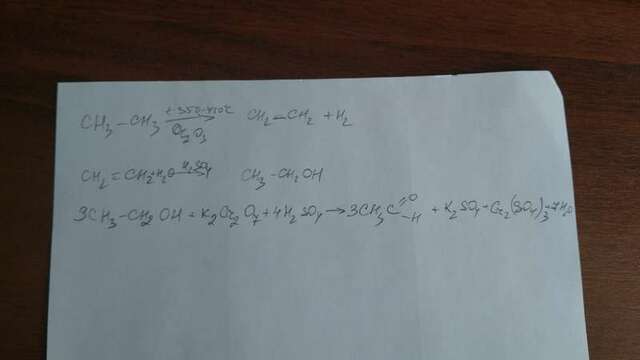 CH3 – CH3 t=350-450°C → Cr2O3 CH2 = CH2 + H2
CH2 = CH2 + H2O H2SO4 → CH3 – CH2OH
3CH3 – CH2 OH + K2 Cr2 O7 + 4H2 SO4 → 3CH3 C =O –H + K2 SO4 + Cr2(SO4)3 + 7H2O